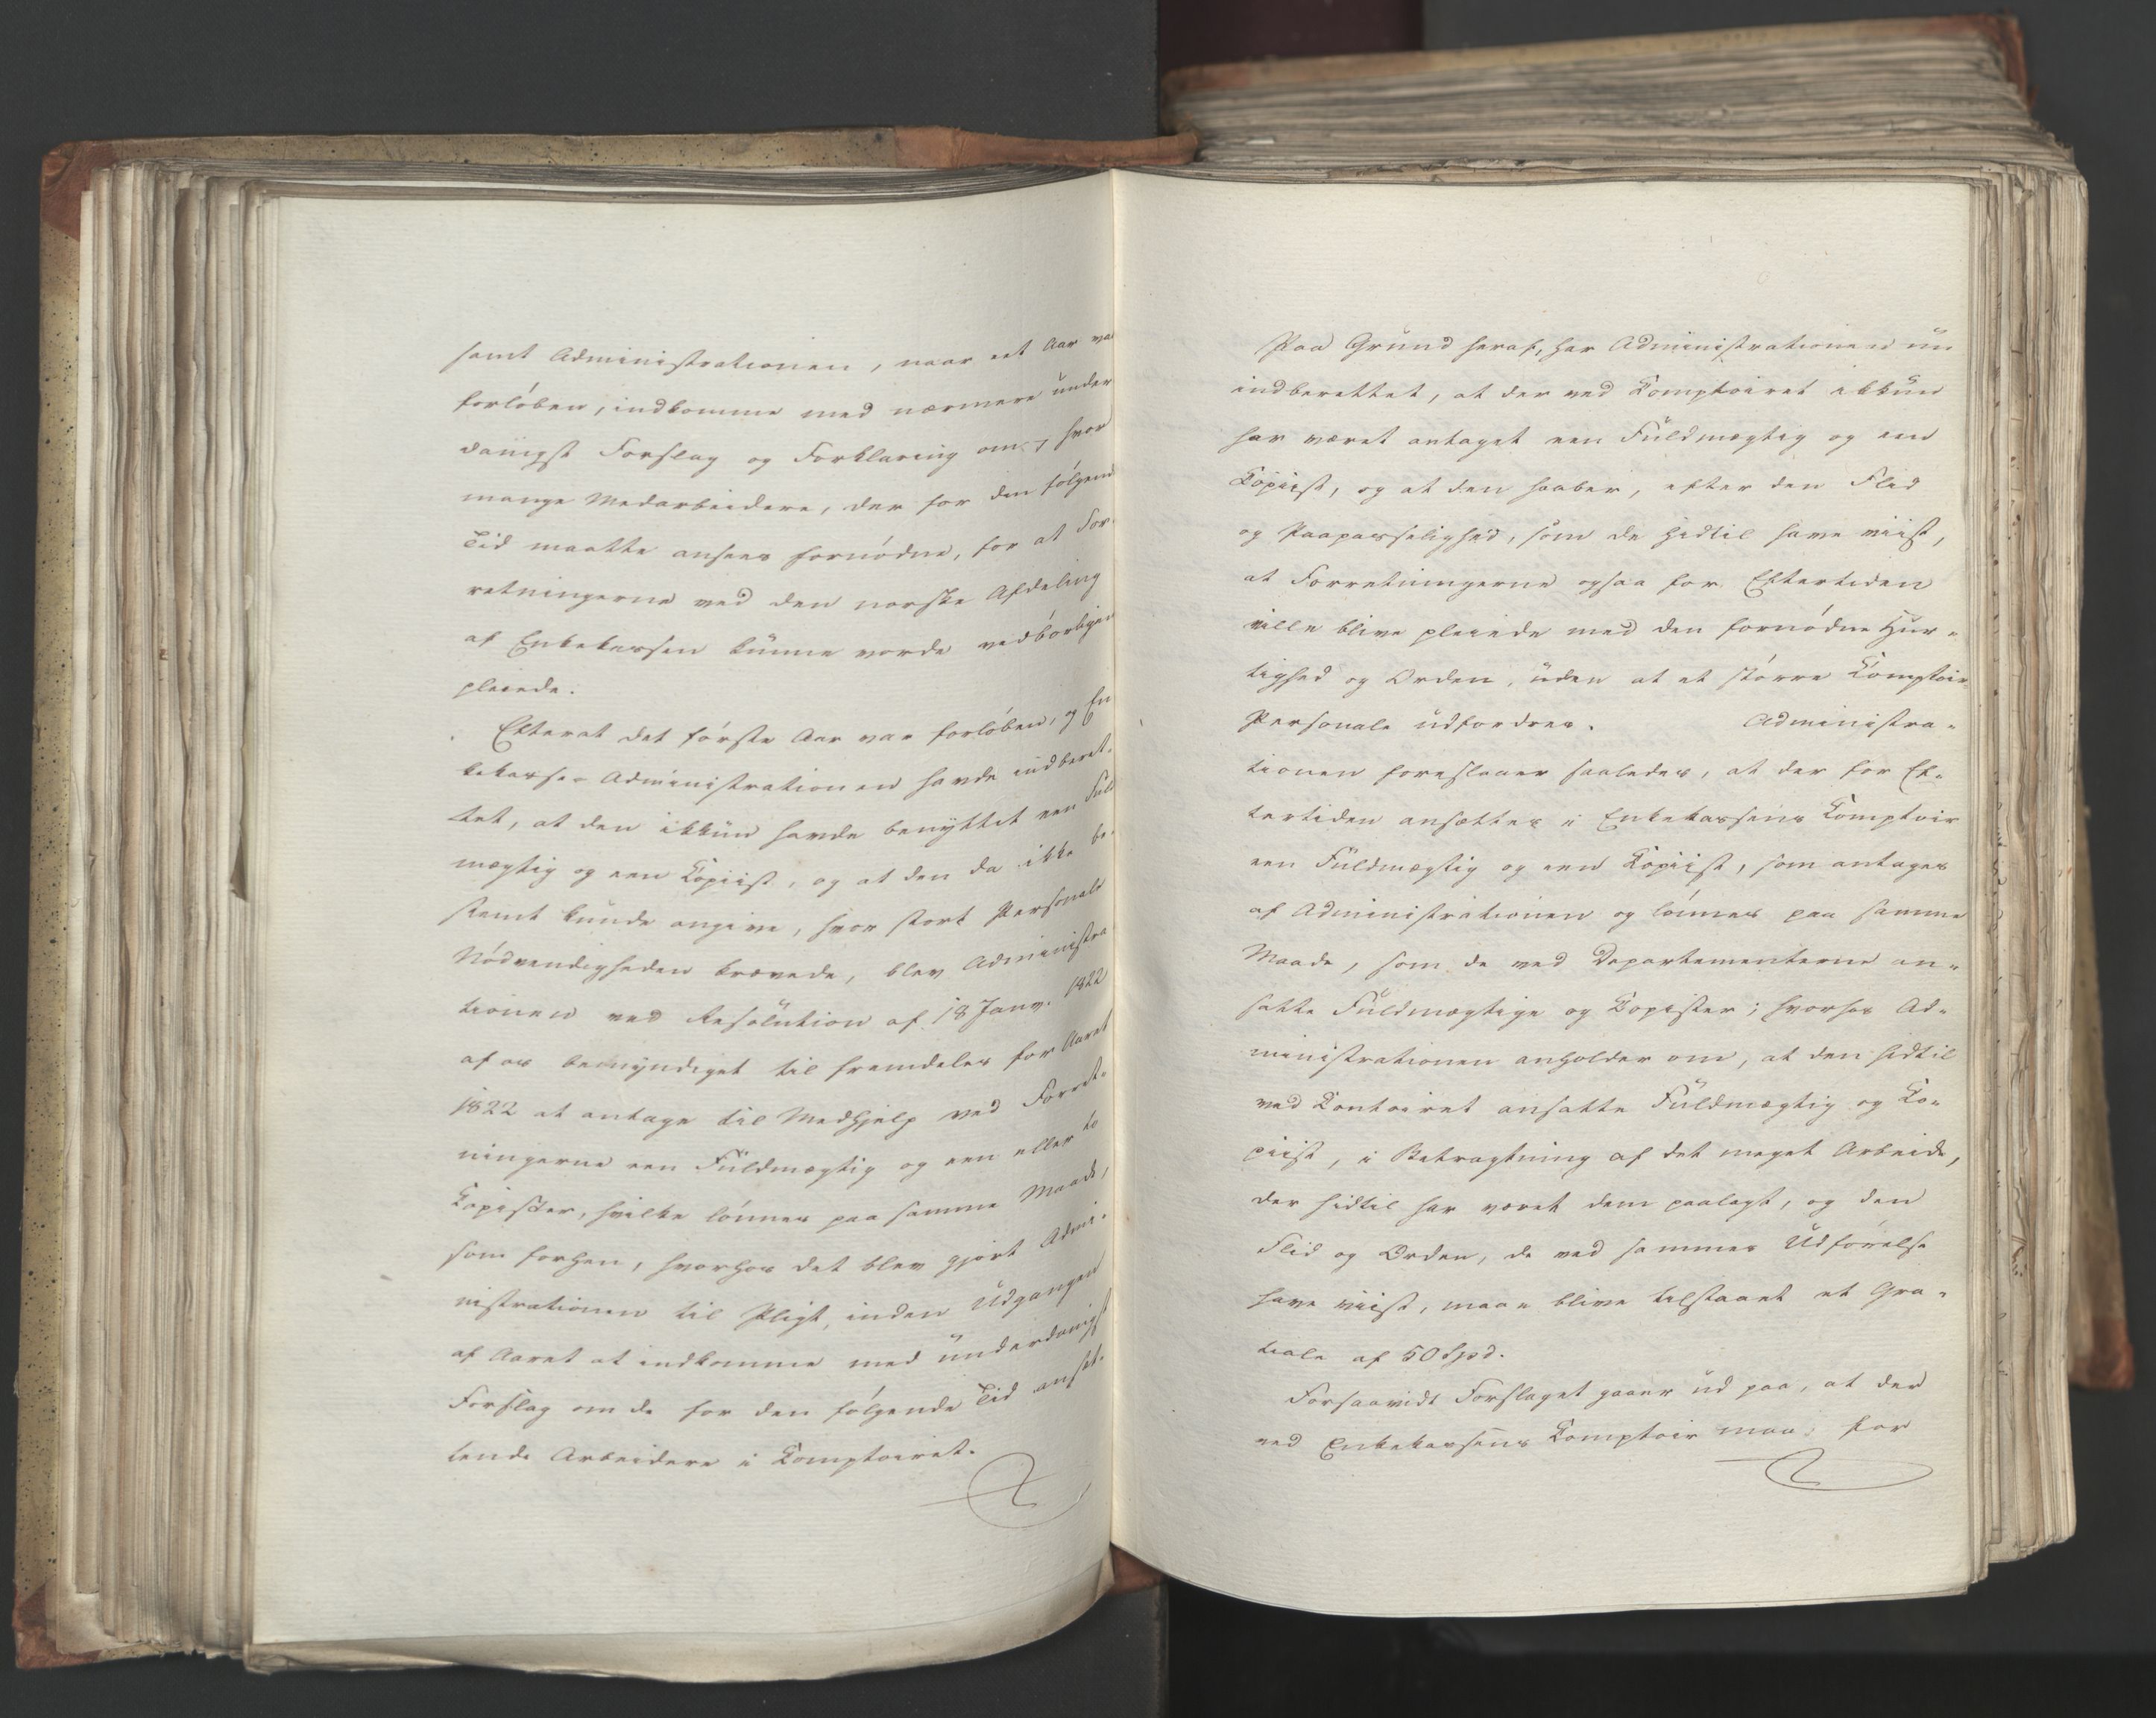 samt Administrationen, naar eet Aar var
forløben, indkomme med nærmere under
danigst Forslag og Forklaring om, hvor
mange Medarbeidere, der for den følgende
Tid maatte ansees fornødne, for at For-
retningerne ved den norske Afdeling
af Enkekassen kunne vorde vedbørligen
pleiede.
Efterat det første Aar var forløben, og En
kekasse-Administrationen havde indberet-
tet, at den ikkun havde benyttet een Fuld
mægtig og een Kopiist, og at den da ikke be-
stemt kunde angive, hvor stort Personale
Nødvendigheden krævede, blev Administra
tionen ved Resolution af 18 Janv. 1822
af os bemyndiget til fremdeles for Aaret
1822 at antage til Medhjelp ved Forret-
ningerne een Fuldmægtig og een eller to
Kopister, hvilke lønnes paa samme Maade,
som forhen, hvorhos det blev gjort Admi-
nistrationen til Pligt, inden Udgangen
af Aaret at indkomme med underdanigst
Forslag om de for den følgende Tid ansæt-
tende Arbeidere i Comptoiret.
Paa Grund heraf, har Administrationen nu
indberettet, at der ved Comptoiret ikkun
har været antaget een Fuldmægtig og een
Kopiist, og at den haaber, efter den Flid
og Paapasselighed, som de hidtil have viist,
at Forretningerne ogsaa for Eftertiden
ville blive pleiede med den fornødne Hur-
tighed og Orden, uden at et større Comptoir-
Personale udfordres. Administra-
tionen foreslaaer saaledes, at der for Ef-
tertiden ansættes i Enkekassens Comptoir
een Fuldmægtig og een Kopiist, som antages
af Administrationen og lønnes paa samme
Maade, som de ved Departementerne an-
satte Fuldmægtige og Kopister; hvorhos Ad-
ministrationen anholder om, at den hidtil
ved Contoiret ansatte Fuldmægtig og Ko-
piist, i Betragtning af det meget Arbeide,
der hidtil har været dem paalagt, og den
Flid og Orden, de ved sammes Udførelse
have viist, maae blive tilstaaet et Gra-
tiale af 50 Spd.
Forsaavidt Forslaget gaaer ud paa, at der
ved Enkekassens Comptoir maa, for